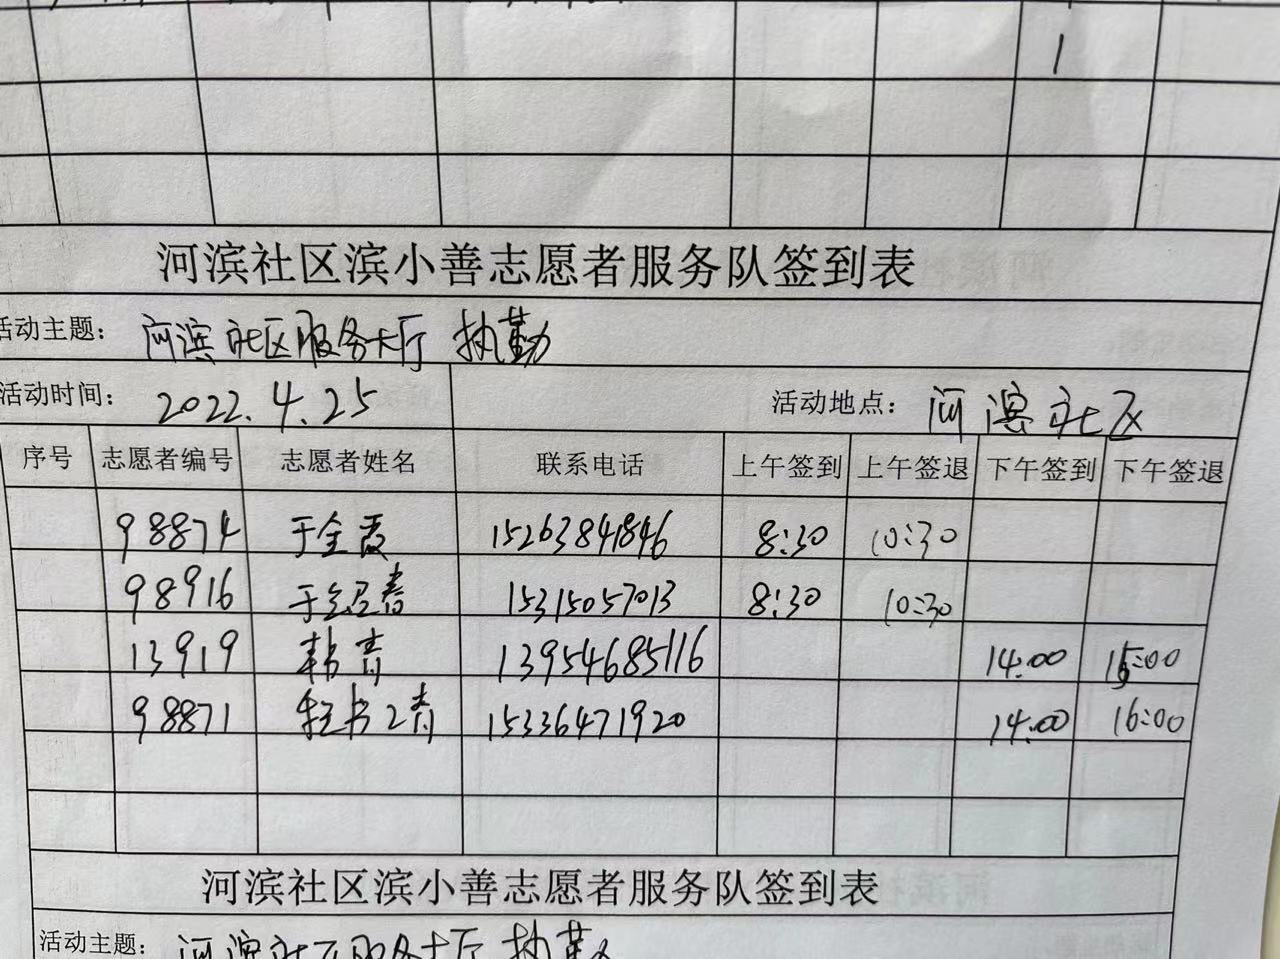 河滨社区滨小善志愿者服务队签到表
活动主题： 河滨社区服务大厅 执勤
活动时间： 2022.4.25 活动地点： 河滨社区
序号 志愿者编号 志愿者姓名 联系电话 上午签到 上午签退 下午签到 下午签退
98874 于全 15263841846 8:30 10:30
98916 于 春 15315057013 8:30 10:30
13919 青 13954685116 14:00 15:00
98871 15336471920 14:00 16:00
河滨社区滨小善志愿者服务队签到表
活动主题： 河滨社区服务大厅 执勤